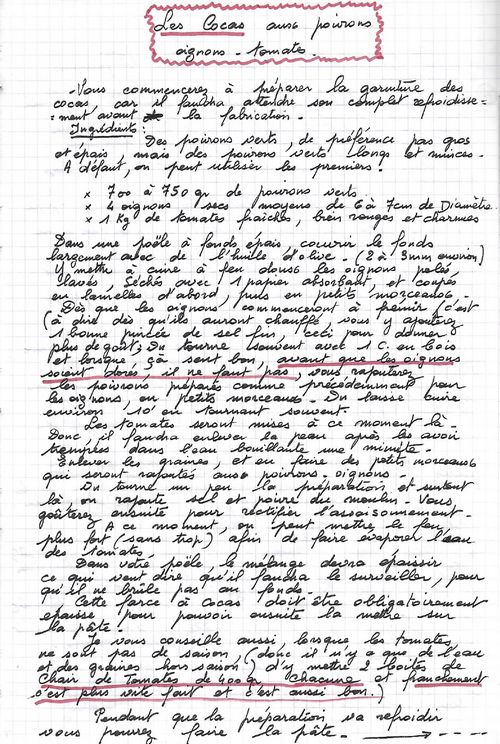 Les Cocas aux poivrons
oignons - tomate.
- Vous commencerez à préparer la garniture des
cocas, car il faudra attendre son complet refroidisse=
=ment avant la fabrication -
Ingrédients:
Des poivrons verts, de préférence pas gros
et épais, mais des poivrons verts longs et minces.
A défaut, on peut utiliser les premiers!
x 700 à 750 gr de poivrons verts.
x 4 oignons secs moyens de 6 à 7cm de Diamètre
x 1 Kg de tomates fraîches, bien rouges et charnues
Dans une poële à fonds épais, couvrir le fonds
largement avec de l'huile d'olive - (2 à 3mm environ)
Y mettre à cuire à feu doux les oignons pelés
lavés, séchés avec 1 papier absorbant, et coupés
en lamelles d'abord, puis en petits morceaux -
Dès que les oignons commenceront à frémir c'est
(à dire dès qu'ils auront chauffé, vous y ajouterez
1 bonne pincée de sel fin (ceci pour donner
plus de goût) On tourne souvent avec 1 C. en bois
et lorsque, çà sent bon, avant que les oignons
soient dorés, il ne faut pas, vous rajouterez
les poivrons préparés comme précédemment pour
les oignons, en petits morceaux - On laisse cuire
environ 10' en tournant souvent.
Les tomates seront mises à ce moment là -
Donc, il faudra enlever la peau après les avoir
trempées dans l'eau bouillante une minute -
Enlever les graines, et en faire des petits morceaux
qui seront rajoutés aux poivrons - oignons -
On tourne un peu la préparation et surtout
là, on rajoute sel et poivre du moulin - Vous
goûterez ensuite pour rectifier l'assaisonnement -
A ce moment, on peut mettre le feu
plus fort (sans trop) afin de faire évaporer l'eau
des tomates.
Dans votre poële, le mélange devra épaissir
ce qui veut dire qu'il faudra le surveiller, pour
qu'il ne brûle pas au fonds -
Cette farce à cocas doit être obligatoirement
épaisse pour pouvoir ensuite la mettre sur
la pâte -
Je vous conseille aussi, lorsque les tomates
ne sont pas de saison, (donc il n'y a que de l'eau
et des graines hors saison) d'y mettre 2 boites de
Chair de Tomates de 400gr Chacune et franchement
c'est plus vite fait et c'est aussi bon.)
Pendant que la préparation va refroidir
vous pourrez faire la pâte - ⟶ - - - -